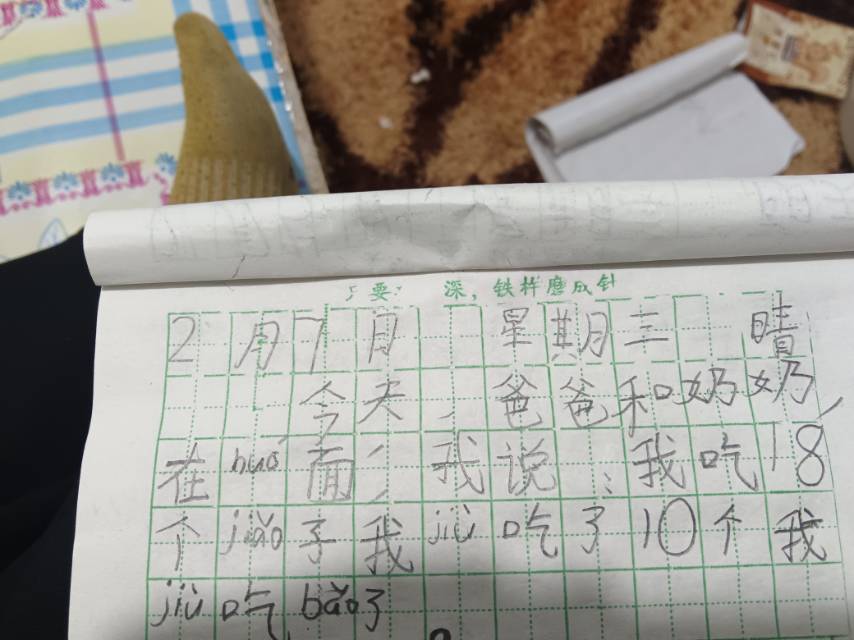 要 深,铁杵磨成针
2月7日 星期三 晴
今天,爸爸和奶奶,
在huó面,我说:我吃18
个jiǎo子我jiù吃了10个我
jiù吃bǎo了